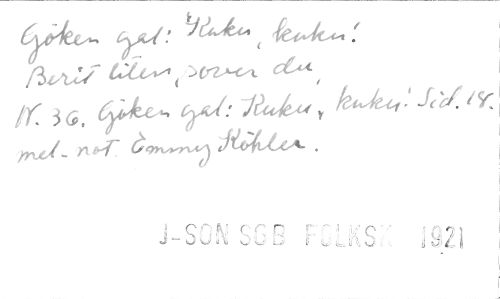 Göken gal: "Kuku, kuku!
Berit liten, sover du,
N. 36. Göken gal: Kuku, kuku! Sid. 18.
mel-not. Emmy Köhler.
J-SON SGB FOLKSK 1921